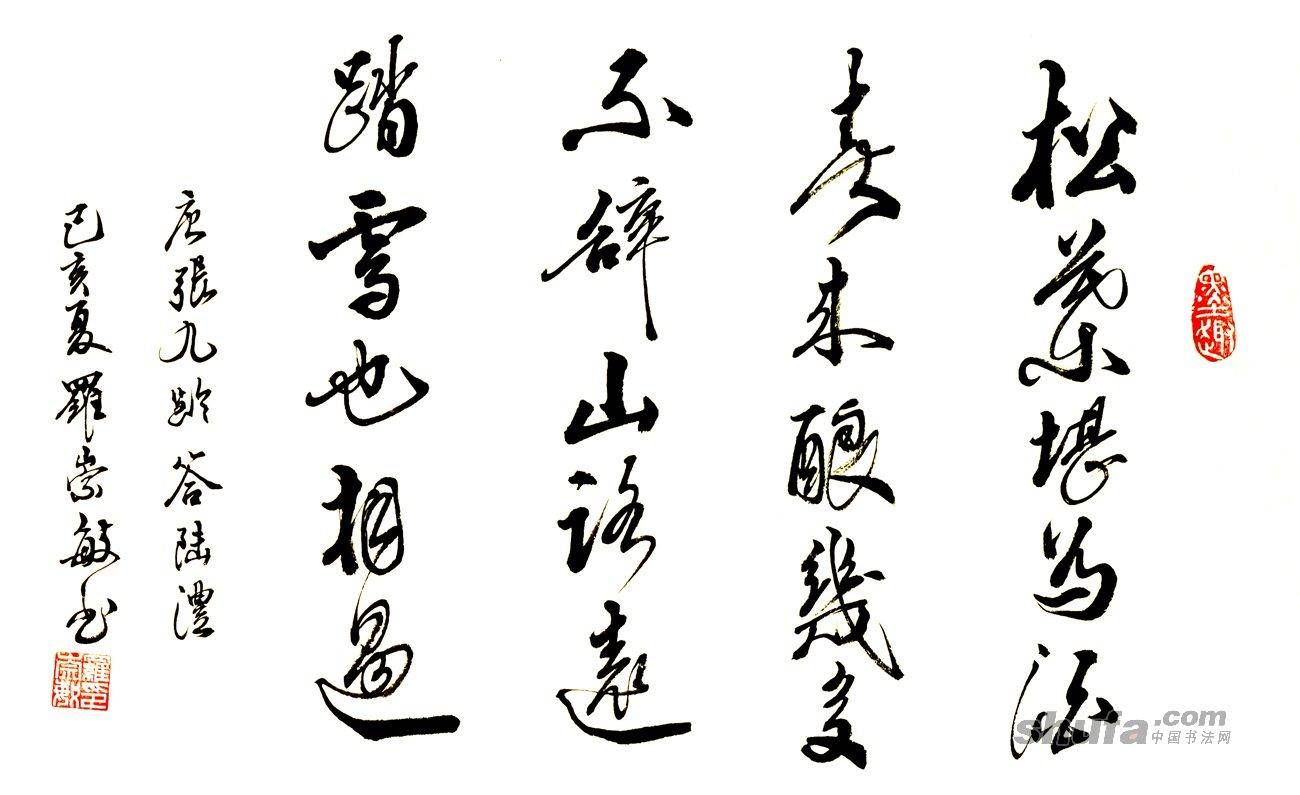 松葉堪為酒
春来釀幾多
不辭山路遠
踏雪也相過
唐張九齡答陆澧
己亥夏羅崇敏书
墨趣
羅崇敏印
shufa.com
中国书法网